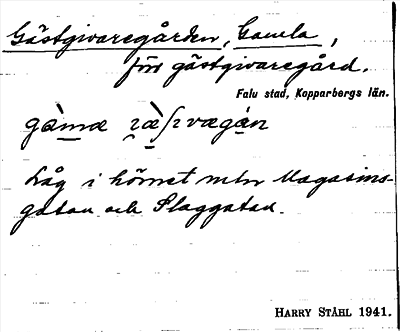 Gästgivaregården, Gamla,
för gästgivaregård.
Falu stad, Kopparbergs län.
Låg i hörnet mln Magasins-
gatan och Slaggatan.
HARRY STÅHL 1941.